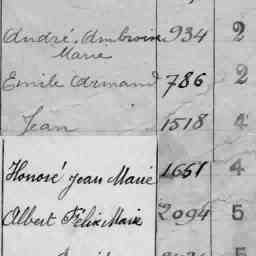 André, Ambroise 934 2
Marie
Emile Armand 786 2
Jean 1518 4
Honoré Jean Marie 1661 4
Albert Félix Marie 2094 5
5